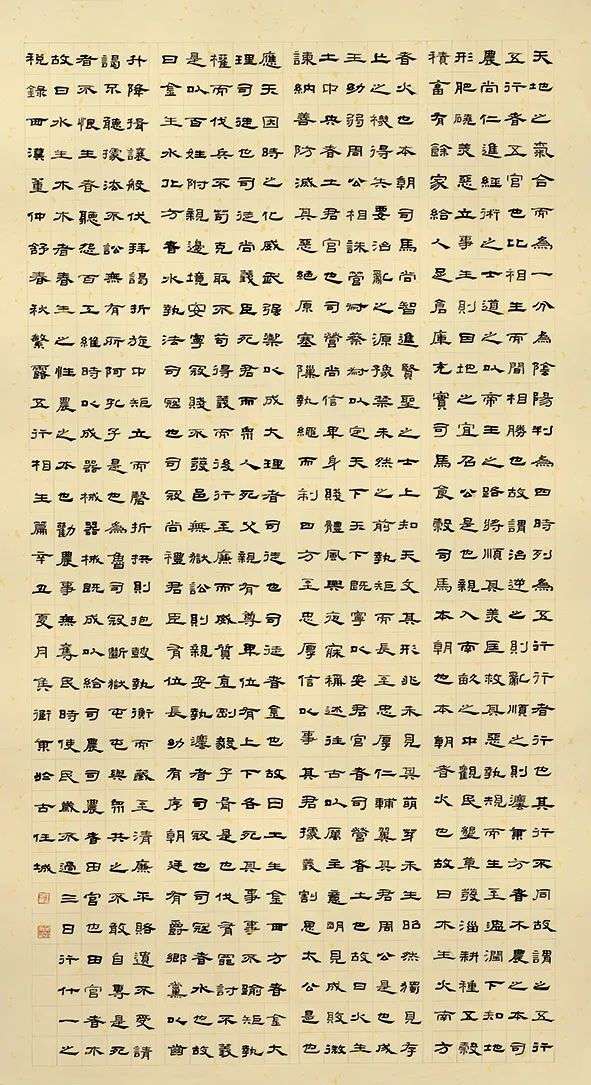 天地之氣合而為一分為陰陽判為四時列為五行行者行也其行不同故謂之五行
五行者五官也比相生而間相勝也故謂治逆之則亂順之則治東方者木農之本司
農尚仁進經術之士道之以帝王之路將順其美匡救其惡執規而生至溫潤下知地
形肥磽美惡立事生則因地之宜召公是也親入南畝之中觀民墾草發淄耕種五穀
積蓄有餘家給人足倉庫充實司馬食穀司馬本朝也本朝者火也故曰木生火南方
者火也本朝司馬尚智進賢聖之士上知天文其形兆未見其萌芽未生昭然獨見存
亡之機得失要治亂之源豫禁未然之前執矩而長至忠厚仁輔翼其君周公是也成
王幼弱周公相誅管叔蔡叔以定天下天下既寧以安君官者司營者土也故曰火生
土中央者土君官也司營尚信卑身賤體夙興夜寐稱述往古以厲主意明見成敗微
諫納善防滅其惡絕原塞隟執繩而制四方至忠厚信以事其君據義割恩太公是也
應天因時之化威武强禦以成大理者司徒也司徒者金也故曰土生金西方者金大
理司徒也司徒尚義臣死君而衆人死父親有尊卑位有上下各死其事事不踰矩執
權而伐兵不苟克取不苟得義而後行至廉而威質直剛毅子胥是也伐有罪討不義
是以百姓附親邊境安寧寇賊不發邑無獄訟則親安執法者司寇也司寇者水也故
曰金生水北方者水執法司寇也司寇尚禮君臣有位長幼有序朝廷有爵鄉黨以齒
升降揖讓般伏拜謁折旋中矩立而磬折拱則抱鼓執衡而藏至清廉平賂遺不受請
謁不聽據法聽訟無有所阿孔子是也為魯司寇斷獄屯屯與衆共之不敢自專是死
者不恨生者不怨百工維時以成器械器械既成以給司農司農者田官也田官者木
故曰水生木木者春生之性農之本也勸農事無奪民時使民歲不過三日行什一之
稅錄西漢董仲舒春秋繁露五行相生篇辛丑夏月焦衛東於古任城